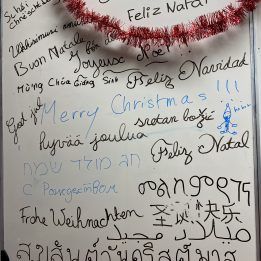 Feliz Natal
Buon Natale
Mừng Chúa Giáng Sinh
Feliz Navidad
God jul
Merry Christmas !!!
hyvää joulua
sretan božić
Feliz Natal
חג מולד שמח
С Рождеством
Frohe Weihnachten
圣诞快乐
ميلاد مجيد
สุขสันต์วันคริสต์มาส